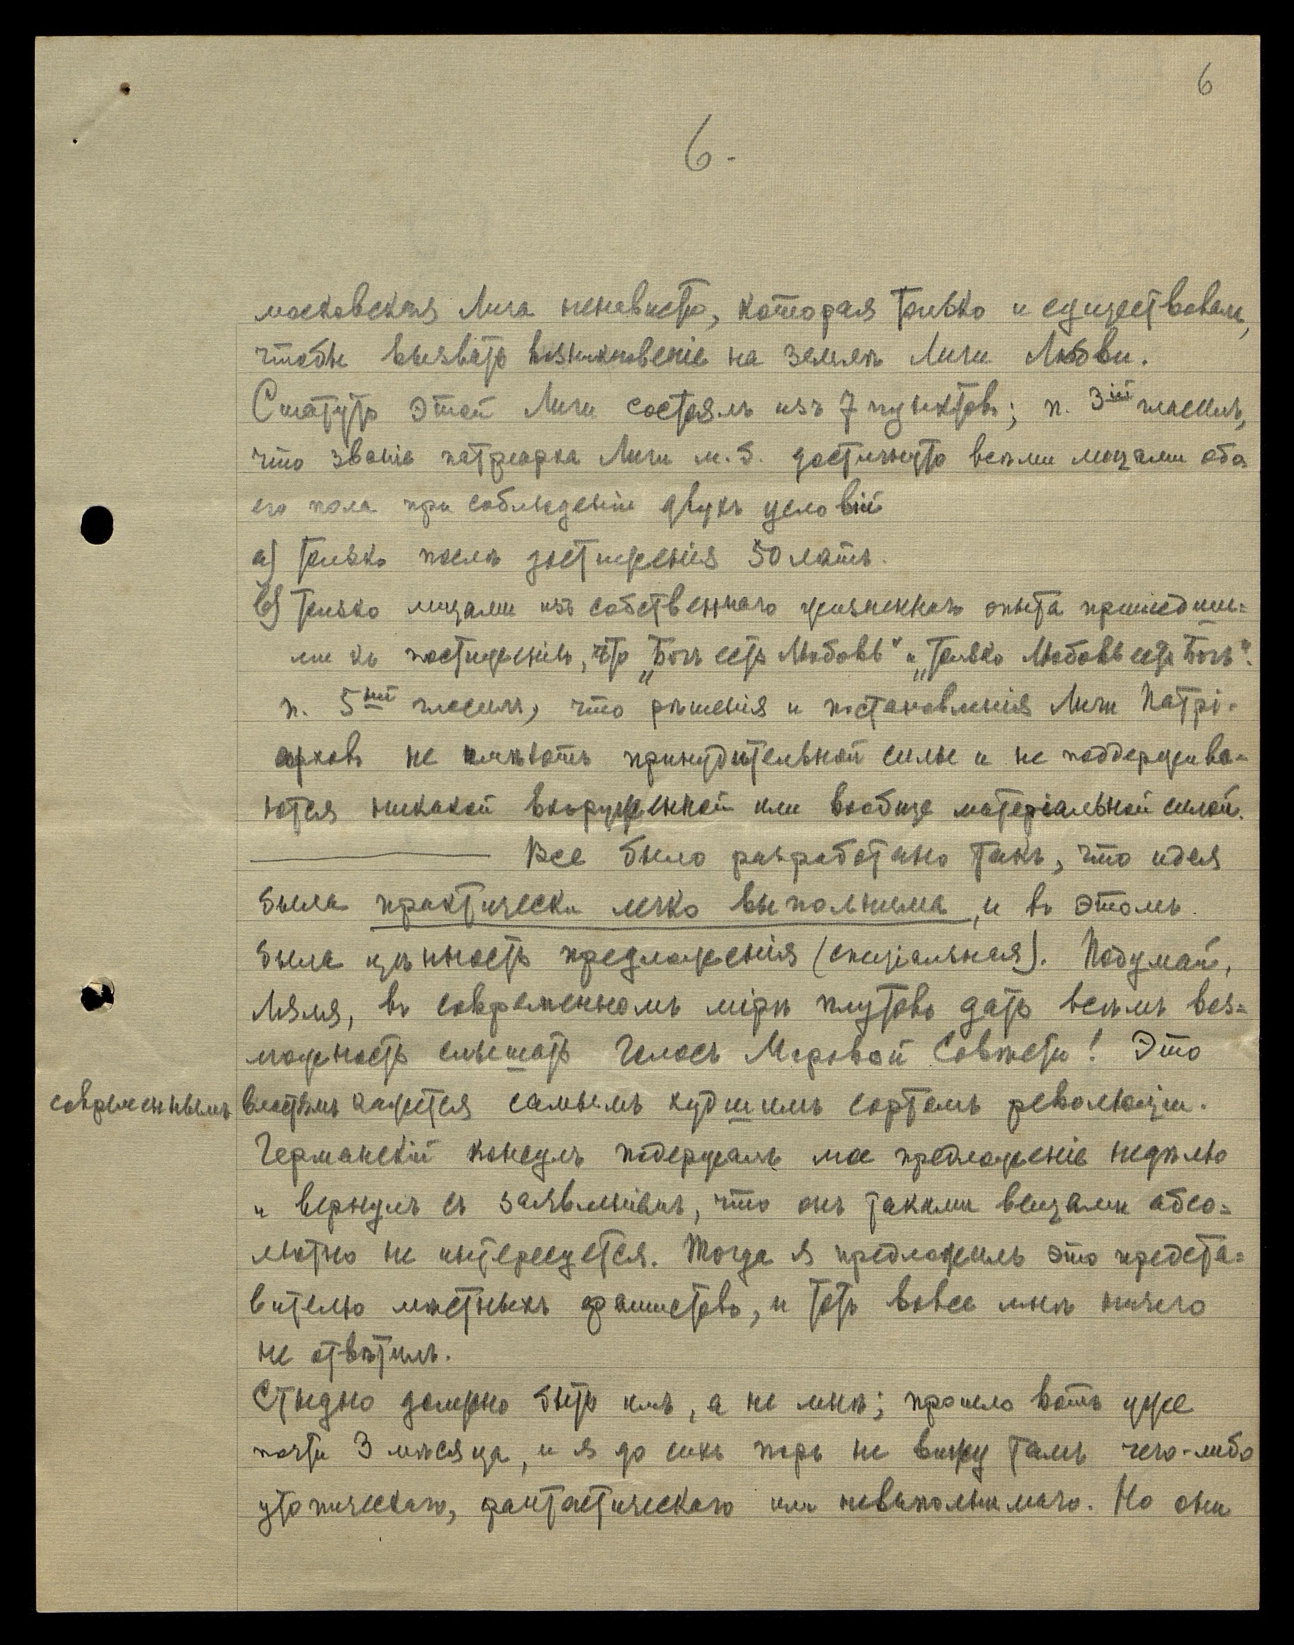 6
6.
московская Лига ненависти, которая только и существовала,
чтобы вызвать возникновеніе на землѣ Лиги Любви.
Статутъ этой Лиги состоялъ изъ 7 пунктовъ; п. 3ій гласилъ,
что званіе патріарха Лиги м. б. достигнуто всѣми лицами обо
его пола при соблюденіи двухъ условій
а) только послѣ достиженія 50 лѣтъ.
b) только лицами изъ собственнаго жизненнаго опыта пришедши=
ми къ постиженію, что „Богъ есть Любовь" и „только Любовь есть Богъ".
п. 5ый гласилъ, что рѣшенія и постановленія Лиги Патрі-
арховъ не имѣютъ принудительной силы и не поддержива=
ются никакой вооруженной или вообще матеріальной силой.
Все было разработано такъ, что идея
была практически легко выполнима, и въ этомъ
была цѣнность предложенія (спеціальная). Подумай,
Ляля, въ современномъ мірѣ плутовъ дать всѣмъ воз=
можность слышать Голосъ Міровой Совѣсти! Это
современнымъ властямъ кажется самымъ худшимъ сортомъ революціи.
Германскій консулъ подержалъ мое предложеніе недѣлю
и вернулъ съ заявленіемъ, что онъ такими вещами абсо=
лютно не интересуется. Тогда я предложилъ это предста=
вителю мѣстныхъ фашистовъ, и тотъ вовсе мнѣ ничего
не отвѣтилъ.
Стыдно должно быть имъ, а не мнѣ; прошло вотъ уже
почти 3 мѣсяца, и я до сихъ поръ не вижу тамъ чего-либо
утопическаго, фантастическаго или невыполнимаго. Но они